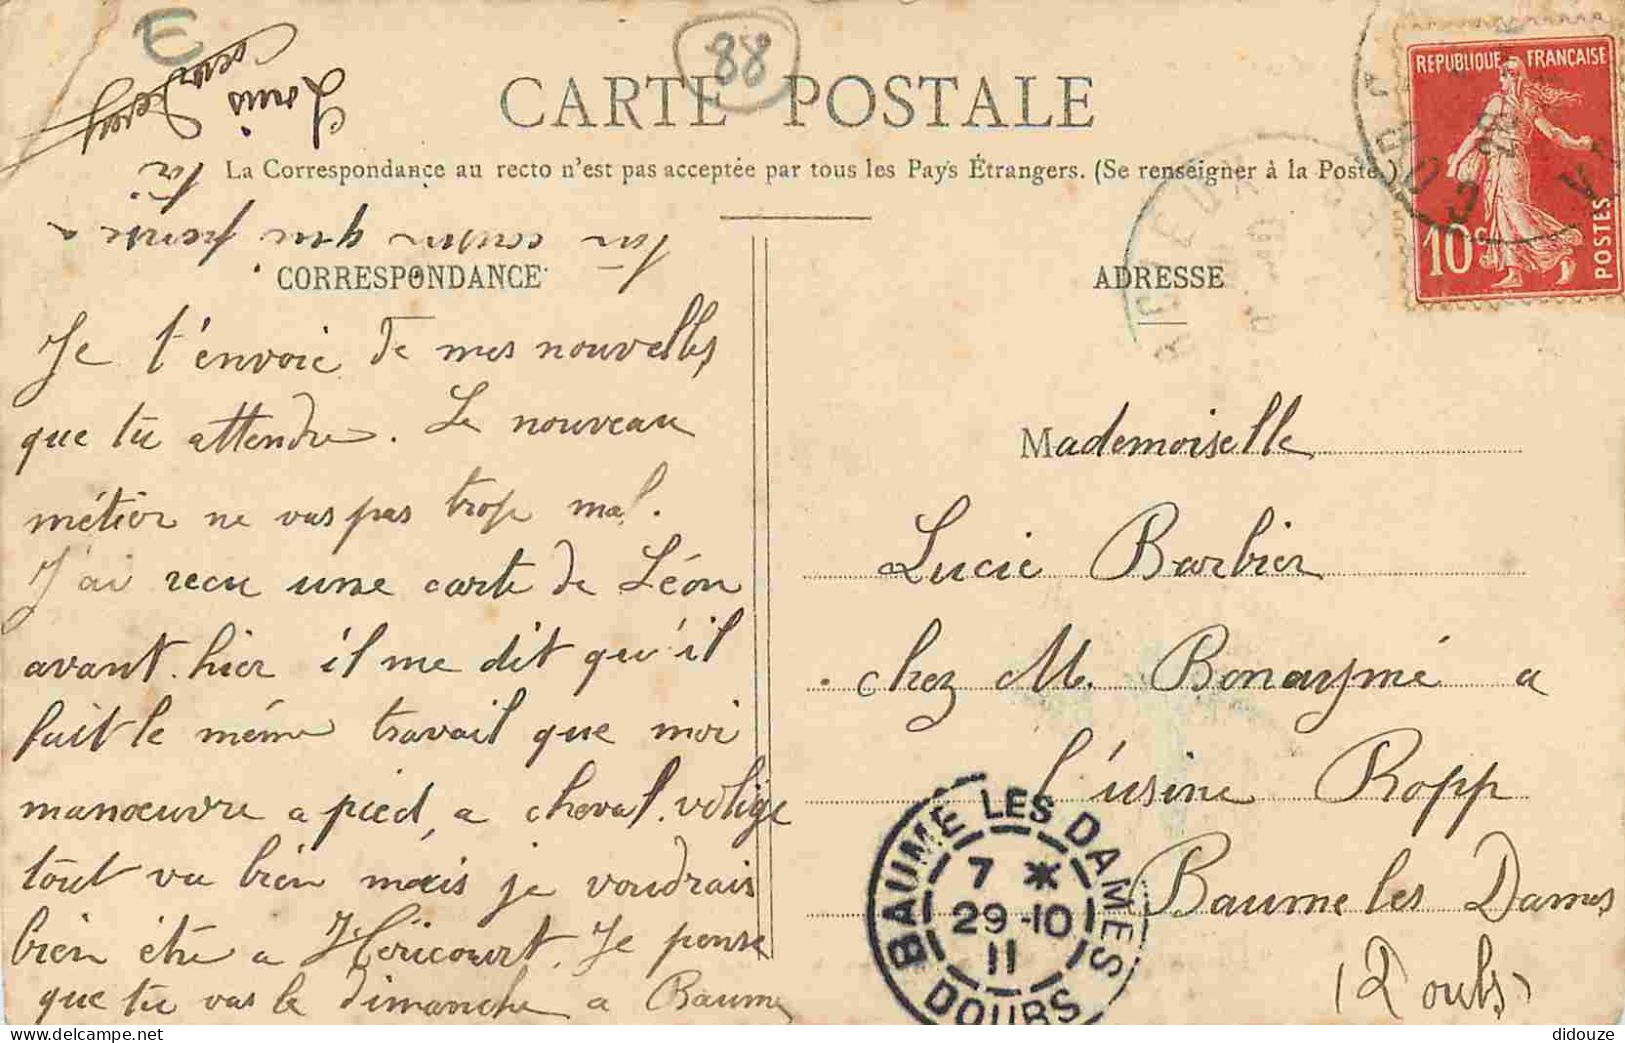 E
88
CARTE POSTALE
La Correspondance au recto n'est pas acceptée par tous les Pays Étrangers. (Se renseigner à la Poste.)
CORRESPONDANCE
Je t'envoie de mes nouvelles
que tu attendre. Le nouveau
métier ne vas pas trop mal.
J'ai recu une carte de Léon
avant. hier il me dit qu'il
fait le même travail que moi
manœuvre a pied, a cheval. voltige
tout va bien mais je voudrais
bien être a Héricourt. Je pense
que tu vas le dimanche a Baume
Ton cousin que pense a
toi
Louis
ADRESSE
Mademoiselle
Lucie Barbier
chez M. Bonaymé a
l'usine Ropp
Baume les Dames
(Doubs)
REPUBLIQUE FRANÇAISE
10c
POSTES
BAUME LES DAMES
7 *
29-10
11
DOUBS
didouze